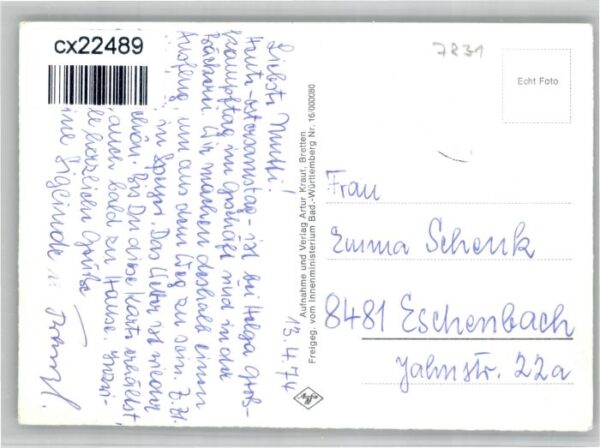 cx22489
7831
Echt Foto
Liebste Mutti!
Heute - Ostersamstag - ist bei Helga Groß-
kampftag im Geschäft und in der
Bäckerei. Wir machen deshalb einen
Ausflug um aus dem Weg zu sein. Z. Zt.
im Das Wetter ist wieder
schön. Bis Du diese Karte erhältst,
auch bald zu Hause.
herzlichen Grüße
Sigrinde
Franz
Aufnahme und Verlag Artur Kraut, Bretten
Freigeg. vom Innenministerium Bad.-Württemberg Nr. 16/000080
13.4.74
Agfa
Frau
Emma Schenk
8481 Eschenbach
Jahnstr. 22a